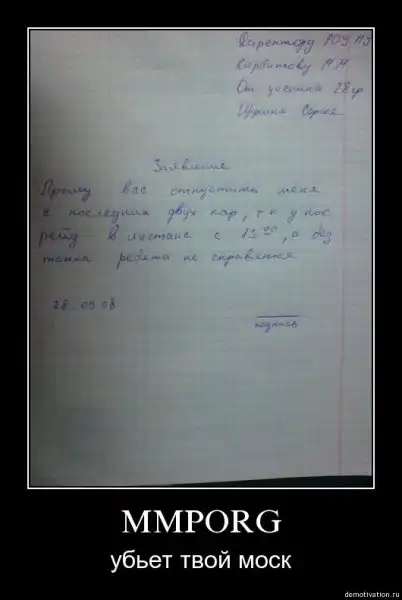 Директору РОУ НУ
Карбитову
От 28 гр
Заявление
Прошу вас отпустить меня
с последних двух пар, т к у нас
рейд в инстанс с 13 30, а без
танка ребята не справятся
28.09.08
подпись
MMPORG
убьет твой моск
demotivation.ru